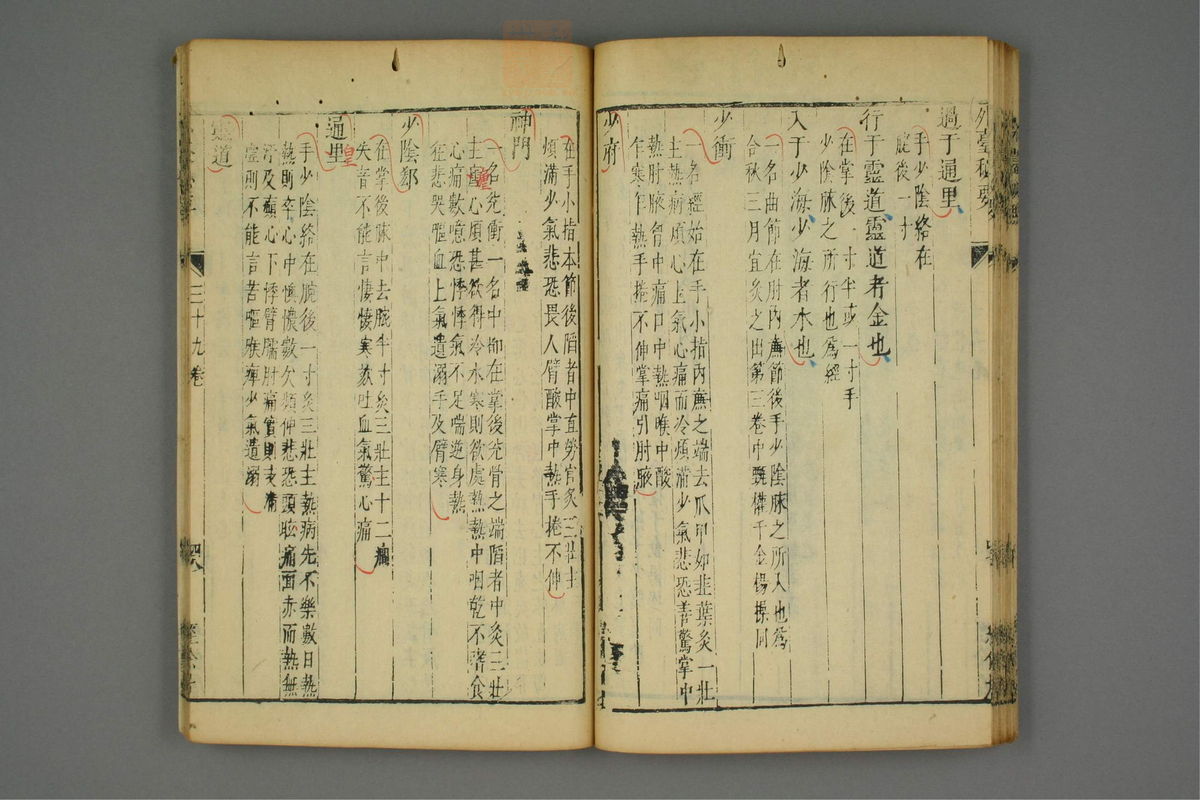 外臺秘要
過于通里
手少陰絡在
腕後一寸
行于靈道靈道者金也
在掌後一寸半或一寸手
少陰脉之所行也爲經
入于少海少海者水也
一名曲節在肘內廉節後手少陰脉之所入也爲
合秋三月宜灸之出第三卷中甄權千金楊操同
少衝
一名經始在手小指內廉之端去爪甲如韭葉灸一壯
主熱病煩心上氣心痛而冷煩滿少氣悲恐善驚掌中
熱肘腋胷中痛口中熱咽喉中酸
乍寒乍熱手捲不伸掌痛引肘腋
少府
在手小指本節後陷者中直勞宮灸三壯主
煩滿少氣悲恐畏人臂酸掌中熱手捲不伸
神門
一名兌衝一名中都在掌後兌骨之端陷者中灸三壯
主瘧心煩甚欲得冷水寒則欲處熱熱中咽乾不嗜食
心痛數噫恐悸悸氣不足喘逆身熱
狂悲哭嘔血上氣遺溺手及臂寒
少陰郄
在掌後脉中去腕半寸灸三壯主十二癇
失音不能言悽悽寒欬吐血氣驚心痛
通里
手少陰絡在腕後一寸灸三壯主熱病先不樂數日熱
熱則卒心中懊憹數欠頻伸悲恐頭眩痛面赤而熱無
汗及癲心下悸臂臑肘痛實則支滿
虛則不能言苦嘔喉痺少氣遺溺
靈道
三十九卷